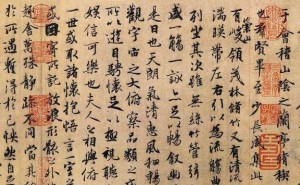 于會稽山陰之蘭亭脩禊
也羣賢畢至少長咸集此
有崇山峻領茂林脩竹又有清
湍暎帶左右引以為流觴
列坐其次雖無絲竹管
盛一觴一詠亦足以暢敘幽
是日也天朗氣清惠風和暢
觀宇宙之大俯察品類之
所以遊目騁懷足以極視聽
娛信可樂也夫人之相與俯
一世或取諸懷抱悟言一室之
或因寄所託放浪形骸之外
趣舍萬殊靜躁不同當其
於所遇蹔得於己快然自